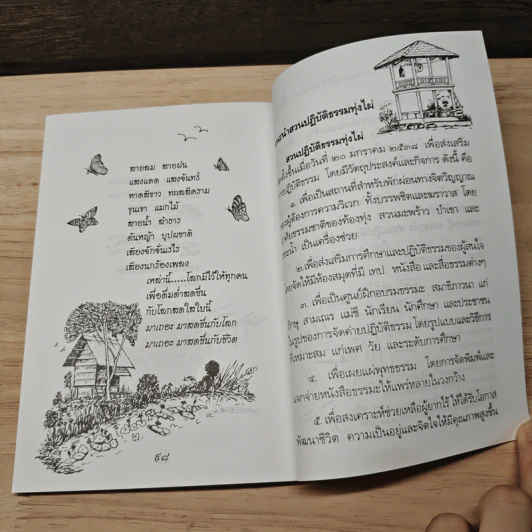 สายลม สายฝน
แสงแดด แสงจันทร์
หาดสีขาว ทะเลสีคราม
ขุนเขา แมกไม้
สายน้ำ ลำธาร
ต้นหญ้า บุปผชาติ
เสียงจักจั่นเรไร
เสียงนกร้องเพลง
เหล่านี้.....โลกมีไว้ให้ทุกคน
เพื่อดื่มด่ำสดชื่น
กับโลกสดใสใบนี้
มาเถอะ มาสดชื่นกับโลก
มาเถอะ มาสดชื่นกับชีวิต
๕๘
สวนปฏิบัติธรรมทุ่งไผ่
สวนปฏิบัติธรรมทุ่งไผ่
ตั้งขึ้นเมื่อวันที่ ๒๐ มกราคม ๒๕๓๘ เพื่อส่งเสริม
ปฏิบัติธรรม โดยมีวัตถุประสงค์และกิจการ ดังนี้ คือ
๑. เพื่อเป็นสถานที่สำหรับพักผ่อนทางจิตวิญญาณ
ผู้ต้องการความวิเวก ทั้งบรรพชิตและฆราวาส โดย
ธรรมชาติของท้องทุ่ง สวนมะพร้าว ป่าเขา และ
น้ำ เป็นเครื่องช่วย
๒.เพื่อส่งเสริมการศึกษาและปฏิบัติธรรมของผู้สนใจ
จัดให้มีห้องสมุดที่มี เทป หนังสือ และสื่อธรรมต่างๆ
๓. เพื่อเป็นศูนย์ฝึกอบรมธรรมะ สมาธิภาวนา แก่
ภิกษุ สามเณร แม่ชี นักเรียน นักศึกษา และประชาชน
ในรูปของการจัดค่ายปฏิบัติธรรม โดยรูปแบบและวิธีการ
ที่เหมาะสม แก่เพศ วัย และระดับการศึกษา
๔. เพื่อเผยแผ่พุทธธรรม โดยการจัดพิมพ์และ
แจกจ่ายหนังสือธรรมะให้แพร่หลายในวงกว้าง
๕. เพื่อสงเคราะห์ช่วยเหลือผู้ยากไร้ ให้ได้รับโอกาส
พัฒนาชีวิต ความเป็นอยู่และจิตใจให้มีคุณภาพสูงขึ้น